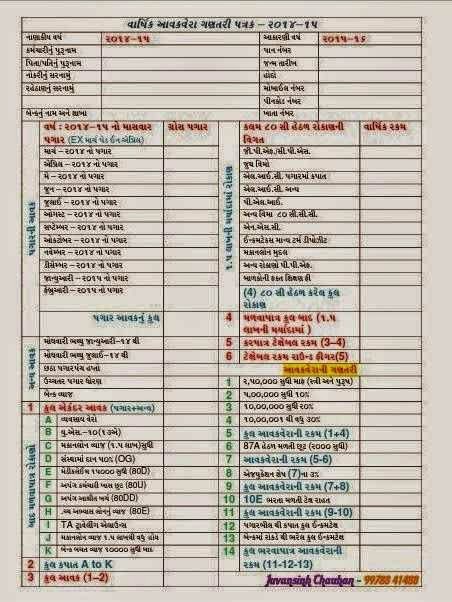 વાર્ષિક આવકવેરા ગણતરી પત્રક – ૨૦૧૪-૧૫
નાણાકીય વર્ષ ૨૦૧૪-૧૫ આકારણી વર્ષ ૨૦૧૫-૧૬
કર્મચારીનું પુરૂનામ પાન નંબર
પિતા/પતિનું પુરૂનામ જન્મ તારીખ
નોકરીનું સરનામું હોદ્દો
રહેઠાણનું સરનામું મોબાઈલ નંબર
પીનકોડ નંબર
બેન્કનું નામ અને શાખા ખાતા નંબર
વર્ષ : ૨૦૧૪-૧૫ નો માસવાર ગ્રોસ પગાર કલમ ૮૦ સી હેઠળ રોકાણની વાર્ષિક રકમ
પગાર (EX માર્ચ પેઈડ ઈન એપ્રિલ) વિગત
માર્ચ – ૨૦૧૪ નો પગાર જી.પી.એફ./સી.પી.એફ.
એપ્રિલ – ૨૦૧૪ નો પગાર જુથ વિમો
મે – ૨૦૧૪ નો પગાર એલ.આઈ.સી. પગારમાં કપાત
જુન – ૨૦૧૪ નો પગાર એલ.આઈ.સી. અન્ય
જુલાઈ – ૨૦૧૪ નો પગાર પી.એલ.આઈ.
ઓગષ્ટ – ૨૦૧૪ નો પગાર અન્ય વિમા ૮૦ સી.સી.સી.
સપ્ટેમ્બર – ૨૦૧૪ નો પગાર એન.એસ.સી.
ઓકટોબર – ૨૦૧૪ નો પગાર ઈન્કમટેક્સ માન્ય ટર્મ ડીપોઝીટ
નવેમ્બર – ૨૦૧૪ નો પગાર મકાનલોન મુદ્દલ
ડીસેમ્બર – ૨૦૧૪ નો પગાર અન્ય રોકાણો પી.પી.એફ.
જાન્યુઆરી – ૨૦૧૫ નો પગાર બાળકોની ફક્ત શિક્ષણ ફી
ફેબ્રુઆરી – ૨૦૧૫ નો પગાર (4) ૮૦ સી હેઠળ કરેલ કુલ
રોકાણ
પગારની આવક
૧.૫ લાખની મર્યાદામાં રોકાણ
પગાર આવકનું કુલ 4 મળવાપાત્ર કુલ બાદ (૧.૫
લાખની મર્યાદામાં )
મોંઘવારી ભથ્થુ જાન્યુઆરી-૧૪ થી 5 કરપાત્ર ટેક્ષેબલ રકમ (3-4)
મોંઘવારી ભથ્થુ જુલાઈ-૧૪ થી 6 ટેક્ષેબલ રકમ રાઉન્ડ ફીગર(5)
છઠ્ઠા પગારપંચ હપ્તો આવકવેરાની ગણતરી
ઉચ્ચતર પગાર ધોરણ 1 ૨,૫૦,૦૦૦ સુધી માફ (સ્ત્રી અને પુરૂષ)
બેન્ક વ્યાજ 2 ૫,૦૦,૦૦૦ સુધી ૧૦%
અન્ય આવક
1 કુલ એકંદર આવક (પગાર+અન્ય) 3 ૧૦,૦૦,૦૦૦ સુધી ૨૦%
A વ્યવસાય વેરો 4 ૧૦,૦૦,૦૦૧ થી વધુ ૩૦%
B યુ.એસ.-૧૦(૧૩એ) 5 કુલ આવકવેરાની રકમ (1+4)
C મકાનલોન વ્યાજ (૧.૫ લાખ)સુધી 6 87A હેઠળ મળતી છુટ (૨૦૦૦ સુધી)
D સંસ્થામાં દાન ૫૦% (OG) 7 આવકવેરાની રકમ (5-6)
E મેડીકલેઈમ ૧૫૦૦૦ સુધી (80D) 8 એજ્યુકેશન શેષ (7)ના ૩%
F અપંગ કર્મચારી ખાસ છૂટ (80U) 9 કુલ આવકવેરાની રકમ (7+8)
G અપંગ આશ્રીત ખર્ચ (80DD) 10 10E ભરતા મળતી ટેક્ષ રાહત
H અભ્યાસ લોનનું વ્યાજ (80E) 11 કુલ આવકવેરાની રકમ (9-10)
I TA ટ્રાવેલીંગ એલાઉન્સ 12 પગારબીલ થી કપાત કુલ ઈન્કમટેક્ષ
J મકાનલોન વ્યાજ ૧.૫ લાખથી વધુ હોય 13 બેન્કમાં રોકડે થી ભરેલ કુલ ઈન્કમટેક્ષ
K બેન્ક બચત વ્યાજ ૧૦૦૦૦ સુધી બાદ 14 કુલ ભરવાપાત્ર આવકવેરાની
બાદ મળવાપાત્ર રોકાણો
2 કુલ કપાત A to K રકમ (11-12-13)
3 કુલ આવક (1–2) Juvansinh Chauhan - 99783 41480